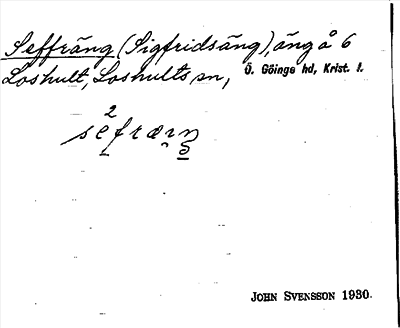 Seffräng (Sigfridsäng), äng å 6
Loshult, Loshults sn, Ö. Göinge hd, Krist. l.
2
sefræŋ
JOHN SVENSSON 1930.